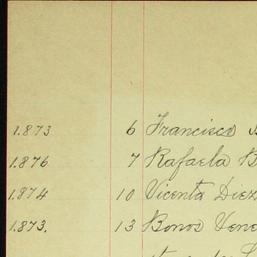 1.873 6 Francisca
1.876 7 Rafaela B
1.874 10 Vicenta Diez
1.873. 13 Bonos Vene